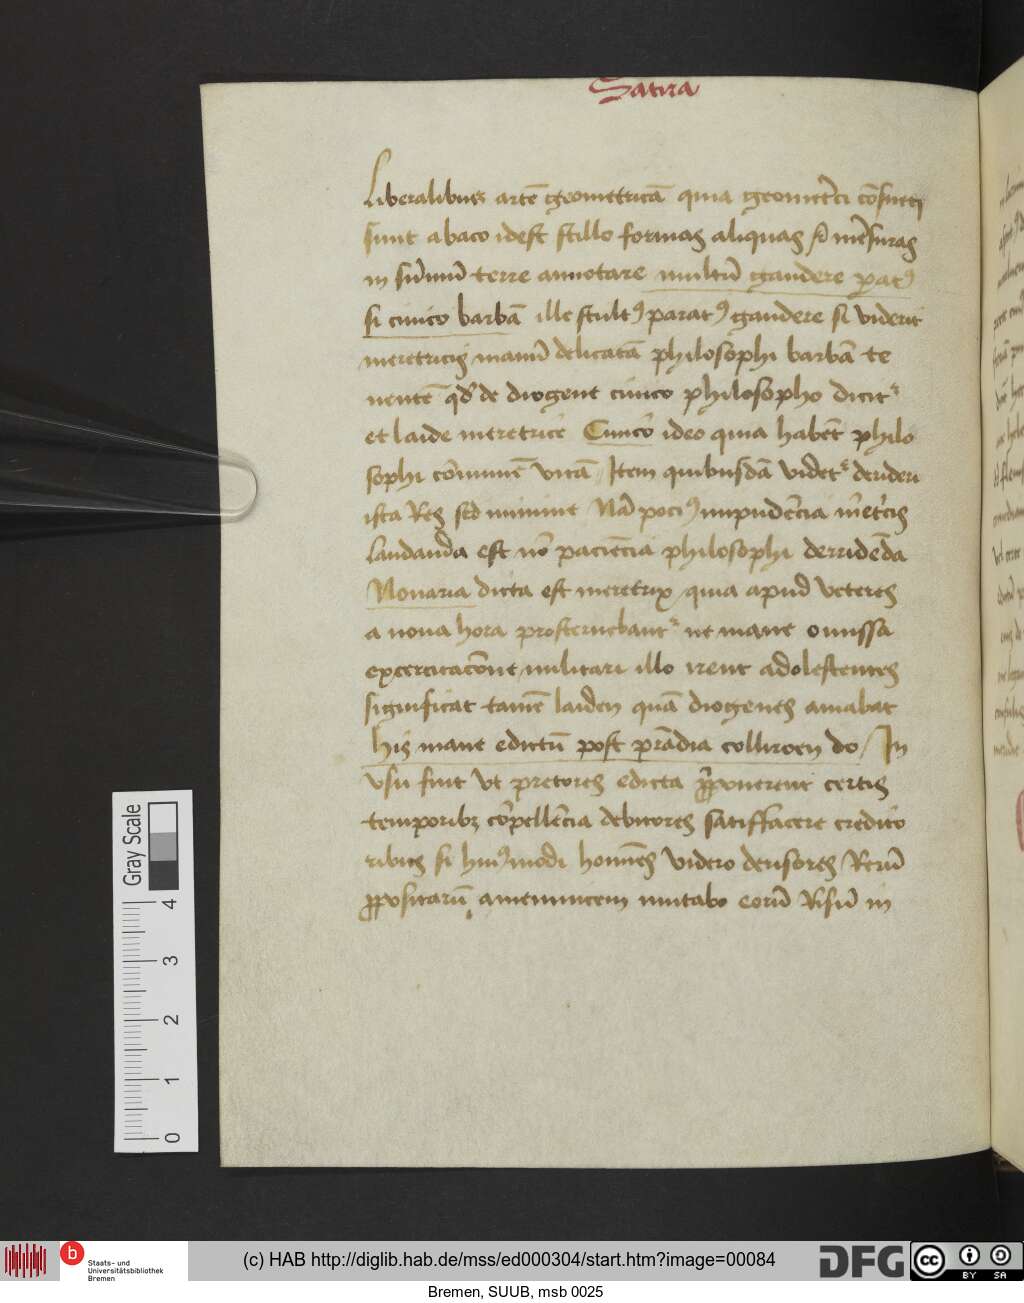 Satira
Liberalibus artē geometricā quia geometrici cōsueti
sunt abaco idest stillo formas aliquas & mēsuras
in sūmū terre annotare multū gaudere parat⁹
si cinico barbā ille stult⁹ parat⁹ gaudere si viderit
meretricis manū delicatā philosophi barbā te
nentē qd' de diogene cinico philosopho dicit^r
et laide meretrice Cinico ideo quia habēt philo
sophi cōmunē vitā Item quibusdā videt^r derideri
ista Res sed minime Nā poci⁹ impudēcia
laudanda est nō paciēcia philosophi derridēda
Nonaria dicta est meretrix quia apud veteres
a nona hora prosternebant^r ne mane omissa
excercitacōne militari illo irent adolescentes
significat tamē laiden quā diogenes amabat
his mane edictū post prādia calliroen do / In
vsu fuit vt pretores edicta proponerent certis
temporibz cōpellēcia debitores satisfacere credito
ribus si hui⁹modi homēs videro derisores Rerū
propositarū amemnicem mutabo eorū Risū in
4
3
2
1
0
Gray Scale
b
Staats- und
Universitätsbibliothek
Bremen
(c) HAB http://diglib.hab.de/mss/ed000304/start.htm?image=00084
DFG
cc
BY SA
Bremen, SUUB, msb 0025